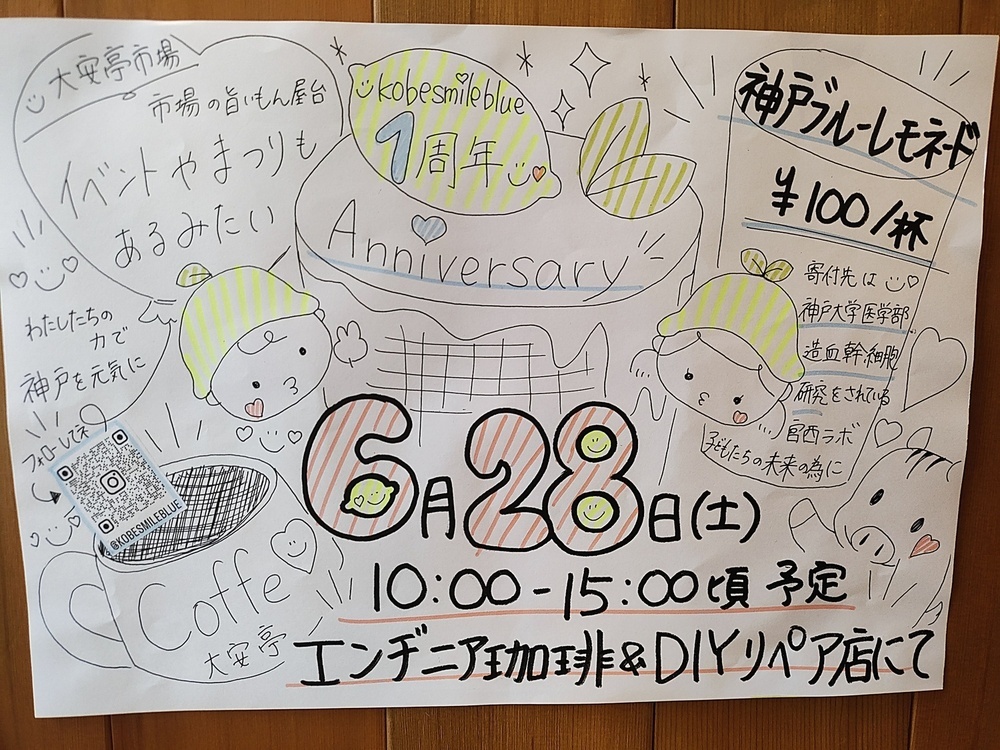 大安亭市場
市場の旨いもん屋台
イベントやまつりも
あるみたい
わたしたちの
力で
神戸を元気に
フォローしてネ
@KOBESMILEBLUE
kobesmileblue
1周年
Anniversary
神戸ブルーレモネード
¥100/杯
寄付先は
神戸大学医学部
造血幹細胞
研究をされている
宮西ラボ
子どもたちの未来の為に
6月28日(土)
10:00-15:00頃 予定
エンヂニア珈琲&DIYリペア店にて
Coffe
大安亭